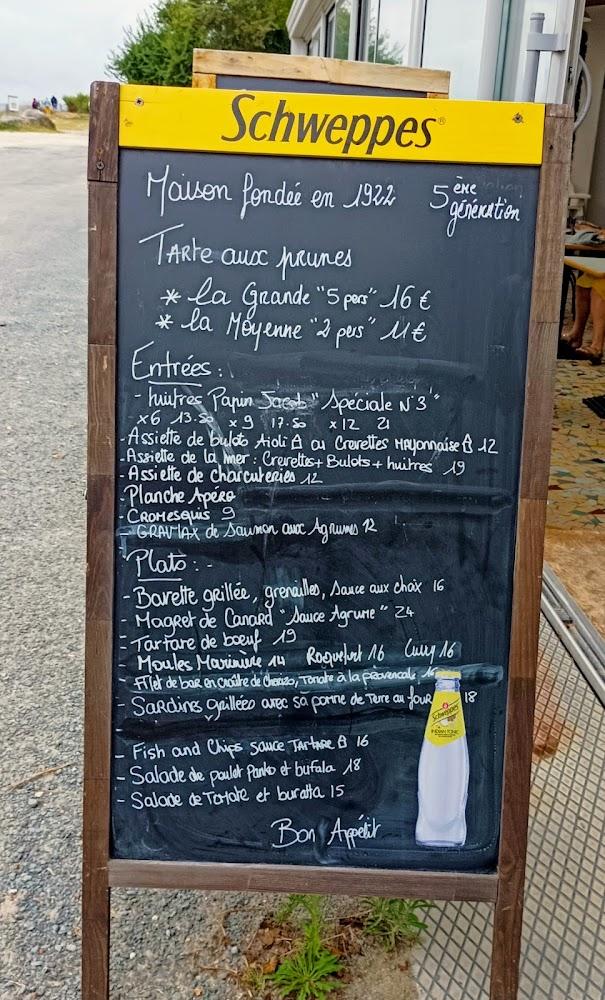 Schweppes
Maison fondée en 1922 5ère génération
Tarte aux prunes
* la Grande "5 pers" 16 €
* la Moyenne "2 pers" 11 €
Entrées :
- huitres Papin Jacob "Spéciale N°3"
x6 13.50 x9 17.50 x12 21
- Assiette de bulots Aioli ou Crevettes Mayonnaise 12
- Assiette de la mer : Crevettes + Bulots + huitres 19
- Assiette de charcuteries 12
- Planche Apéro
- Cromesquis 9
- GRAVLAX de Saumon aux Agrumes 12
Plats : -
- Bavette grillée, grenailles, sauce aux choix 16
- Magret de Canard "Sauce Agrume" 24
- Tartare de boeuf 19
- Moules Marinière 14 Roquefort 16 Curry 16
- Filet de bar en croûte de chorizo, Tomate à la provençale
- Sardines Grillées avec sa pomme de Terre au four 18
- Fish and Chips Sauce Tartare 16
- Salade de poulet Panko et bufala 18
- Salade de Tomate et buratta 15
Bon Appétit
Schweppes
INDIAN TONIC